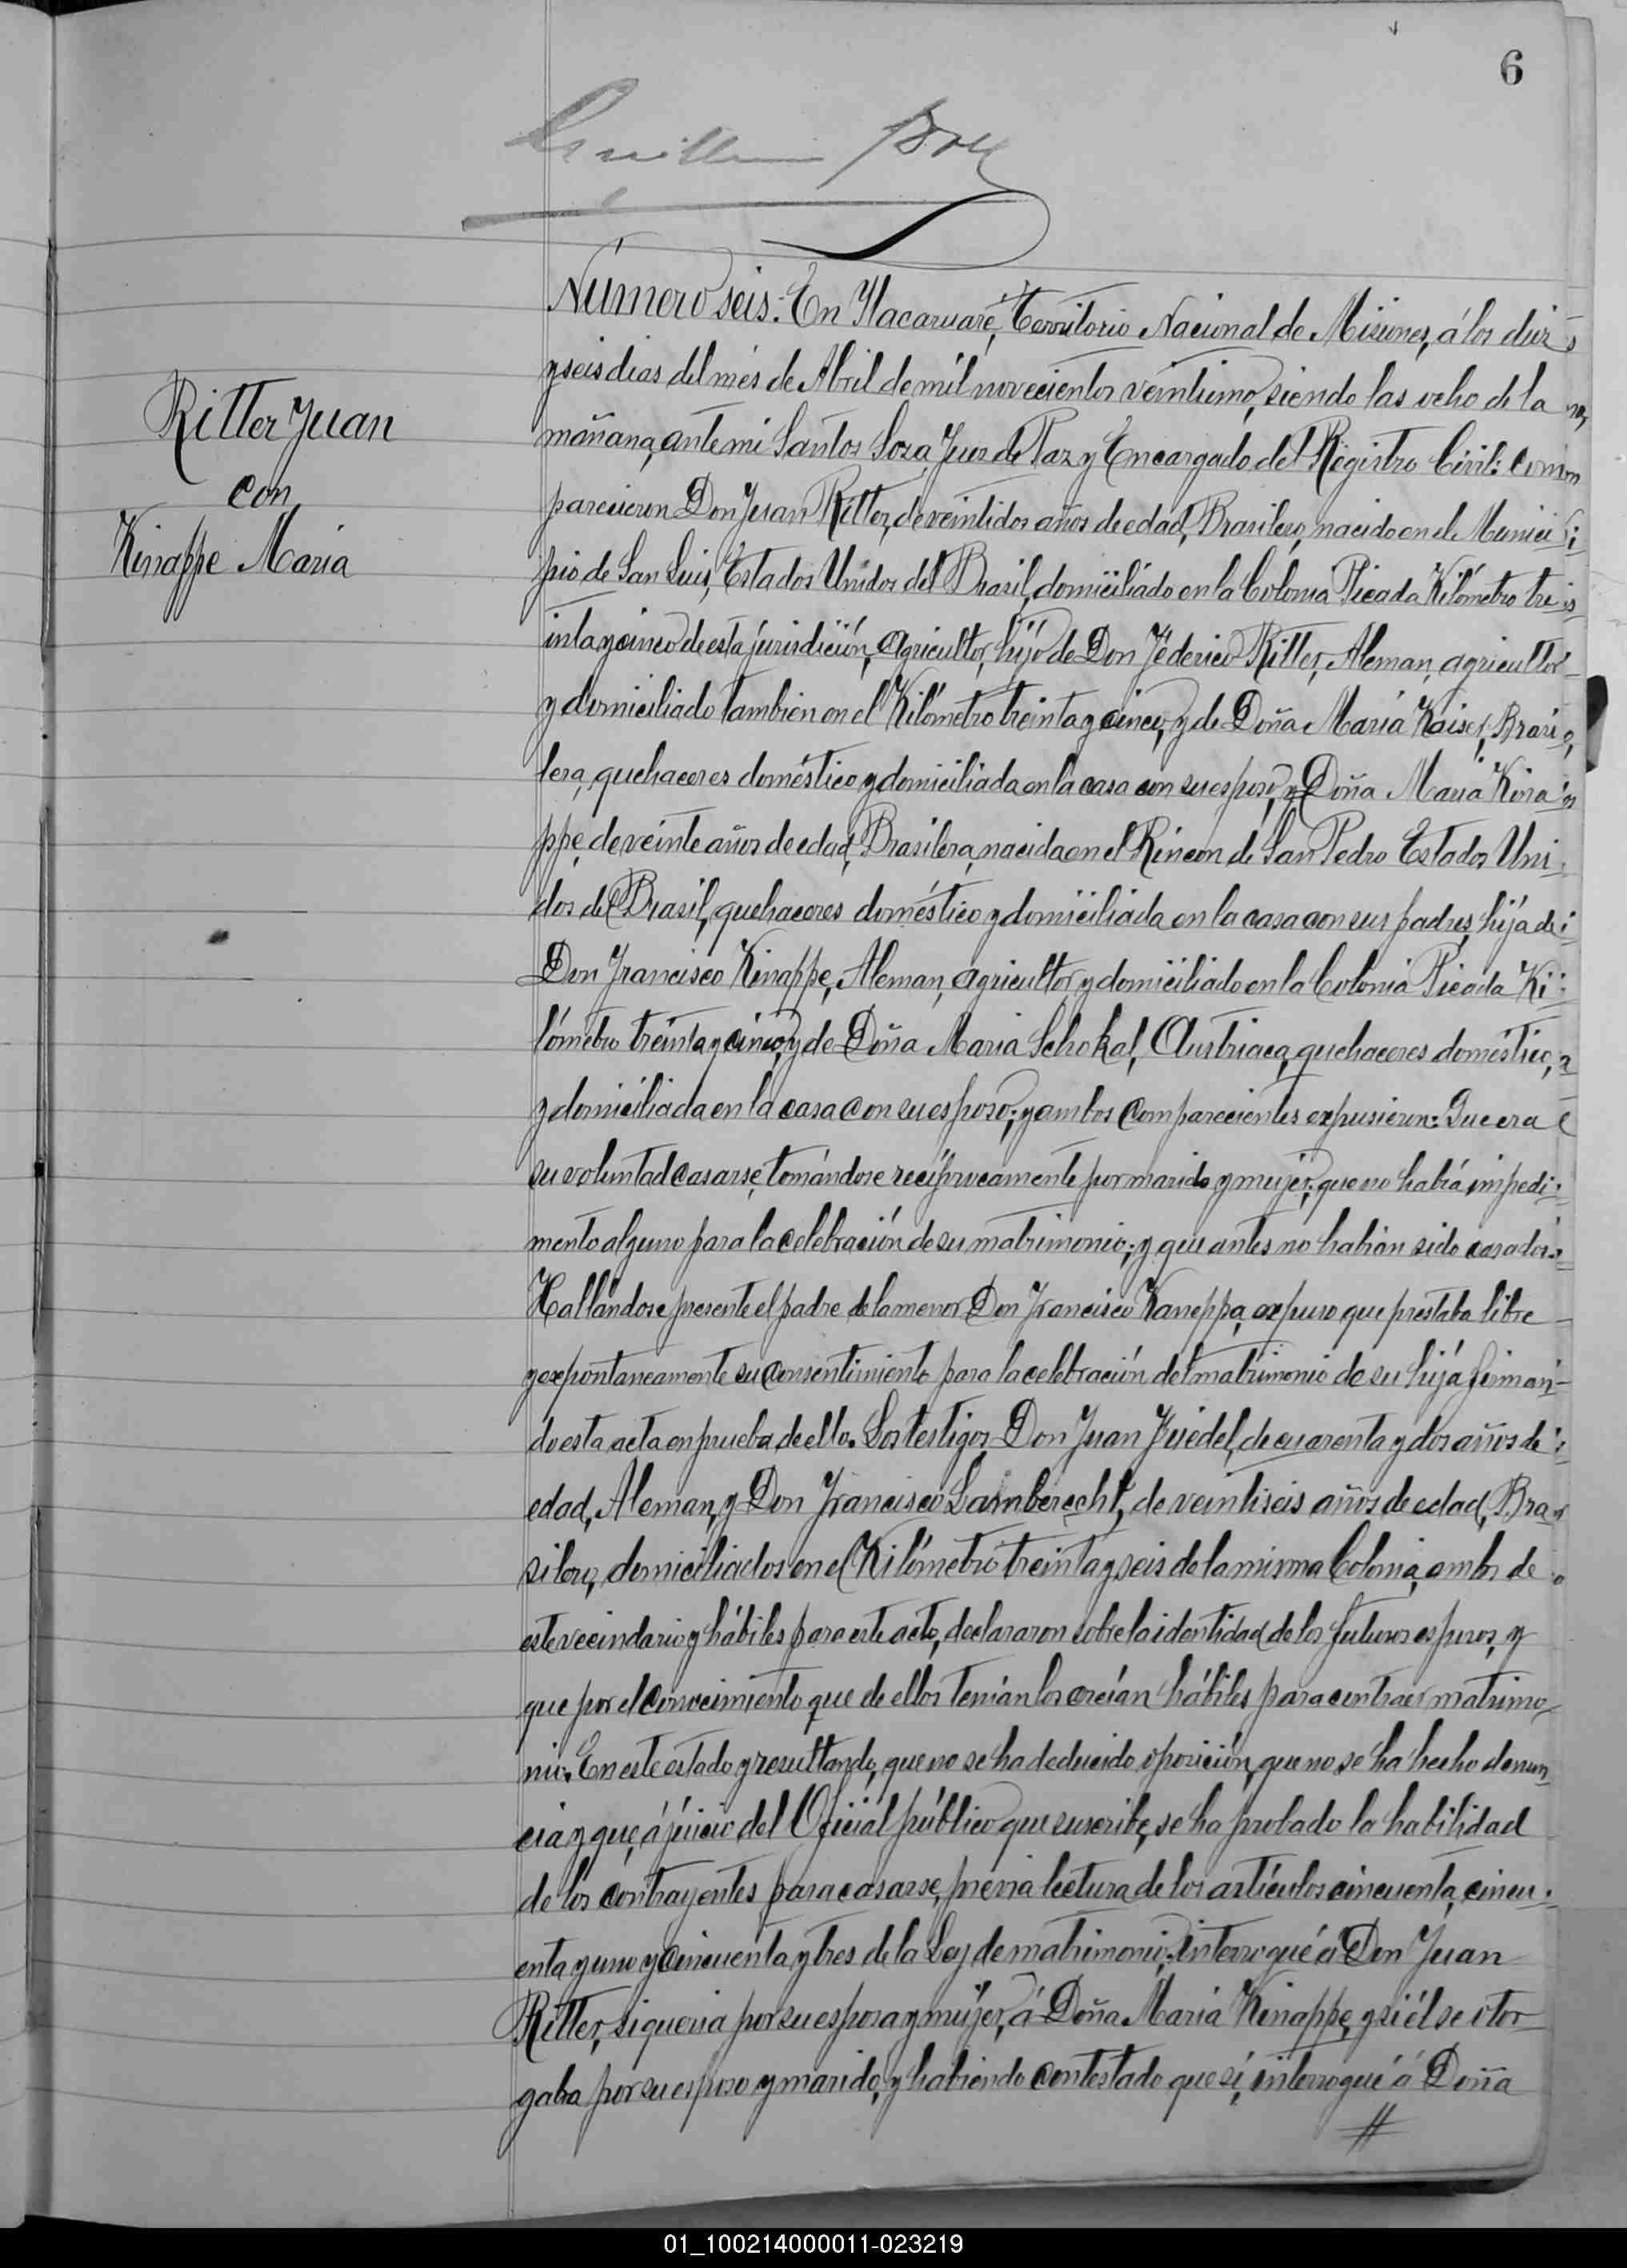 6
Número seis. En Itacaruaré, Territorio Nacional de Misiones, á los diez
y seis dias del més de Abril de mil novecientos veintiuno, siendo las ocho de la
mañana, ante mi Santos Sosa, Juez de Paz y Encargado del Registro Civil: com
Ritter Juan
con
Kinappe Maria
parecieron Don Juan Ritter, de veintidos años de edad, Brasilero, nacido en el Munici
pio de San Luis, Estados Unidos del Brasil, domiciliado en la Colonia Picada Kilómetro tre
inta y cinco de esta jurisdición, Agricultor, hijo de Don Féderico Ritter, Aleman, agricultor
y domiciliado tambien en el Kilómetro treinta y cinco, y de Doña Maria Kaiser, Brasi
lera, quehaceres doméstico y domiciliada en la casa con su esposo, y Doña Maria Kina
ppe, de veinte años de edad, Brasilera, nacida en el Rincon de San Pedro Estados Uni
dos del Brasil, quehaceres doméstico y domiciliada en la casa con sus padres, hija de
Don Francisco Kinappe, Aleman, agricultor y domiciliado en la Colonia Picada Ki
lómetro treinta y cinco, y de Doña Maria Schokal, Austriaca, quehaceres doméstico,
y domiciliada en la casa con su esposo; y ambos comparecientes expusieron: Que era
su voluntad casarse, tomándose recíprocamente por marido y mujer; que no habia impedi
mento alguno para la celebración de su matrimonio; y que antes no habian sido casados.
Hallándose presente el padre de la menor Don Francisco Kaneppa, expuso que prestaba libre
y expontaneamente su consentimiento para la celebración del matrimonio de su hija firman-
do esta acta en prueba de ello. Los testigos, Don Juan Friedel, de cuarenta y dos años de
edad, Aleman, y Don Francisco Lamberecht, de veintiseis años de edad, Bra
silero, domiciliados en el Kilómetro treinta y seis de la misma Colonia, ambos de
este vecindario y hábiles para este acto, declararon sobre la identidad de los futuros esposos, y
que por el conocimiento que de ellos tenían los creían hábiles para contraer matrimo-
nio. En este estado y resultando, que no se ha deducido oposición, que no se ha hecho denun
cia y que, á júicio del Oficial público que suscribe, se ha probado la habilidad
de los contrayentes para casarse, previa lectura de los artículos cincuenta, cincu
enta y uno y cincuenta y tres de la Ley de matrimonio; interrogué á Don Juan
Ritter, si queria por su esposa y mujer, á Doña Maria Kinappe, y si él se otor
gaba por su esposo y marido, y habiendo contestado que sí, interrogué á Doña
//
01_100214000011-023219